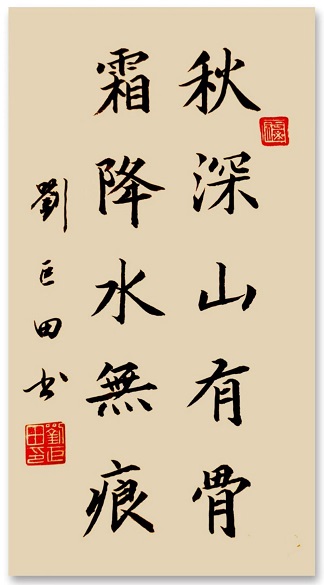 秋深山有骨
霜降水無痕
劉巨田书